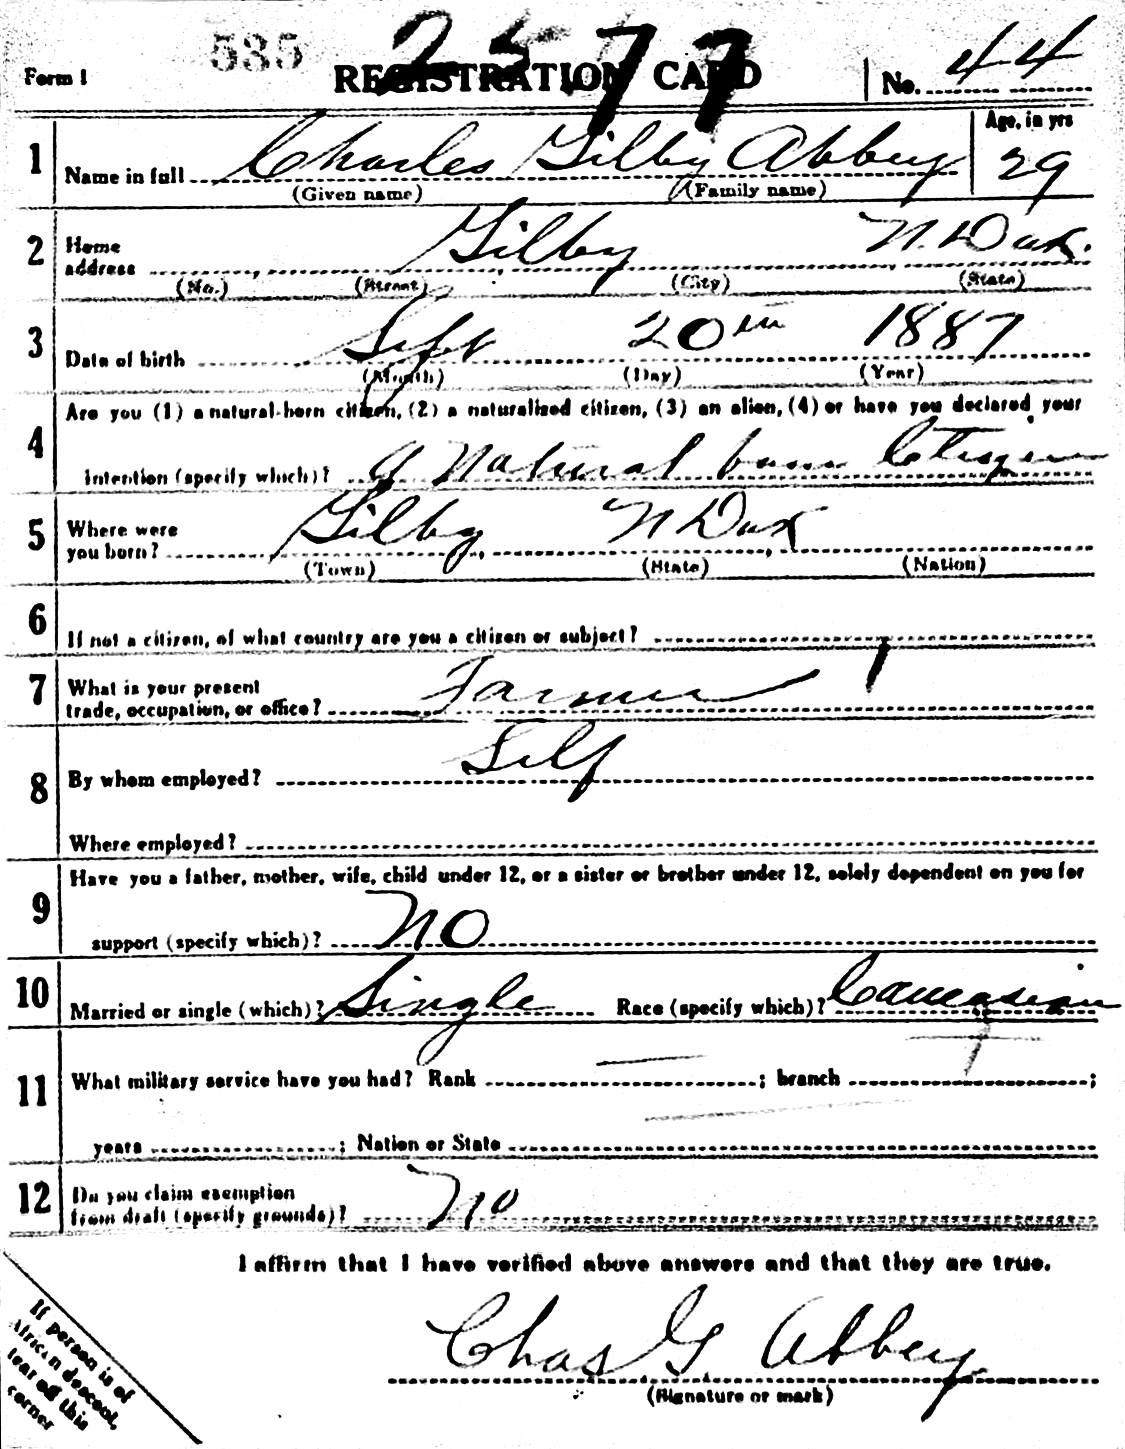 535 2577
Form 1 REGISTRATION CARD No. 44
Age, in yrs
1 Name in full Charles Gilby Abbey 29
(Given name) (Family name)
2 Home
address Gilby N. Dak.
(No.) (Street) (City) (State)
3 Date of birth Sept 20th 1887
(Month) (Day) (Year)
Are you (1) a natural-born citizen, (2) a naturalized citizen, (3) an alien, (4) or have you declared your
4 intention (specify which)? a Natural born Citizen
5 Where were
you born? Gilby N Dak
(Town) (State) (Nation)
6 If not a citizen, of what country are you a citizen or subject?
7 What is your present
trade, occupation, or office? Farmer
8 By whom employed? Self
Where employed?
Have you a father, mother, wife, child under 12, or a sister or brother under 12, solely dependent on you for
9 support (specify which)? No
10 Married or single (which)? Single Race (specify which)? Caucasian
11 What military service have you had? Rank ; branch ;
years ; Nation or State
12 Do you claim exemption
from draft (specify grounds)? No
I affirm that I have verified above answers and that they are true.
Chas G. Abbey
(Signature or mark)
If person is of
African descent,
tear off this
corner